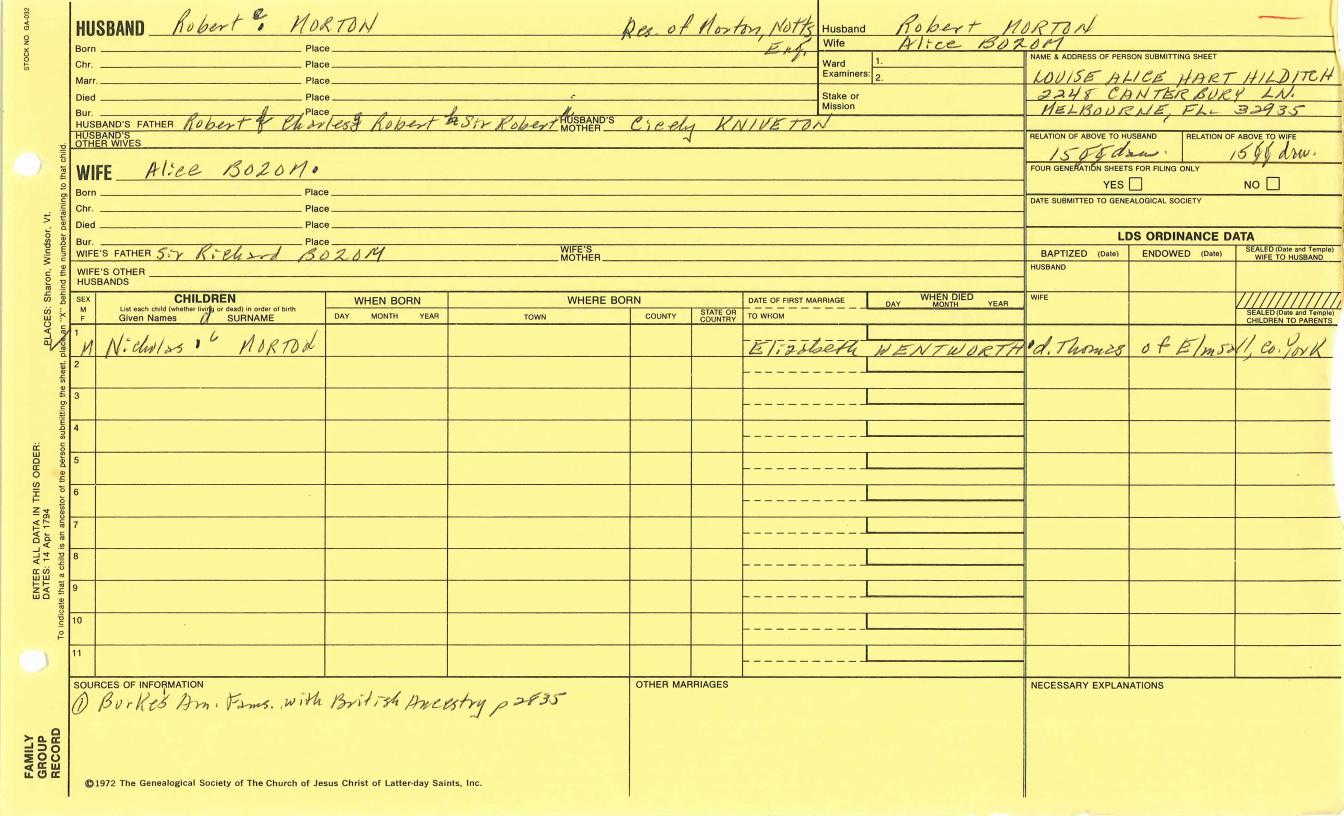 STOCK NO. GA-032
HUSBAND Robert e MORTON Res. of Morton, Notts
Eng.
Born Place
Chr. Place
Marr. Place
Died Place
Bur. Place
HUSBAND'S FATHER Robert f Charles g Robert h Sir Robert HUSBAND'S MOTHER Cicely KNIVETON
HUSBAND'S OTHER WIVES
Husband Robert MORTON
Wife Alice BOZOM
Ward Examiners: 1.
2.
Stake or Mission
NAME & ADDRESS OF PERSON SUBMITTING SHEET
LOUISE ALICE HART HILDITCH
2248 CANTERBURY LN.
MELBOURNE, FL 32935
RELATION OF ABOVE TO HUSBAND RELATION OF ABOVE TO WIFE
FOUR GENERATION SHEETS FOR FILING ONLY
YES NO
DATE SUBMITTED TO GENEALOGICAL SOCIETY
WIFE Alice BOZOM.
Born Place
Chr. Place
Died Place
Bur. Place
WIFE'S FATHER Sir Richard BOZOM WIFE'S MOTHER
WIFE'S OTHER HUSBANDS
LDS ORDINANCE DATA
BAPTIZED (Date) ENDOWED (Date) SEALED (Date and Temple) WIFE TO HUSBAND
HUSBAND
WIFE
SEALED (Date and Temple) CHILDREN TO PARENTS
SEX M F
CHILDREN
List each child (whether living or dead) in order of birth
Given Names SURNAME
WHEN BORN
DAY MONTH YEAR
WHERE BORN
TOWN COUNTY STATE OR COUNTRY
DATE OF FIRST MARRIAGE
TO WHOM
WHEN DIED
DAY MONTH YEAR
1
M Nicholas MORTON Elizabeth WENTWORTH d. Thomas of Elmsall, co. York
2
3
4
5
6
7
8
9
10
11
SOURCES OF INFORMATION
① Burke's Am. Fams. with British Ancestry p 2835
OTHER MARRIAGES
NECESSARY EXPLANATIONS
©1972 The Genealogical Society of The Church of Jesus Christ of Latter-day Saints, Inc.
FAMILY GROUP RECORD
ENTER ALL DATA IN THIS ORDER:
DATES: 14 Apr 1794
PLACES: Sharon, Windsor, Vt.
To indicate that a child is an ancestor of the person submitting the sheet, place an "X" behind the number pertaining to that child.